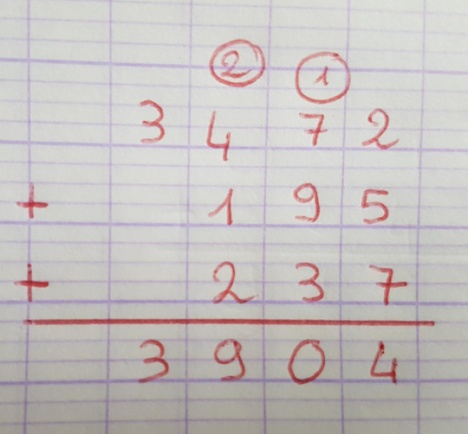 2 1
3 4 7 2
+ 1 9 5
+ 2 3 7
3 9 0 4